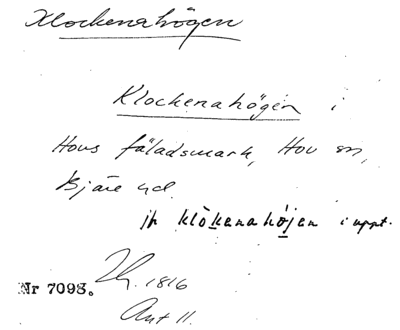 Klockenahögen
Klockenahögen i
Hovs fäladsmark, Hov sn,
Bjäre hd
jfr klòkenahøjen i uppt.
1816
Nr 7098.
Ant 11.